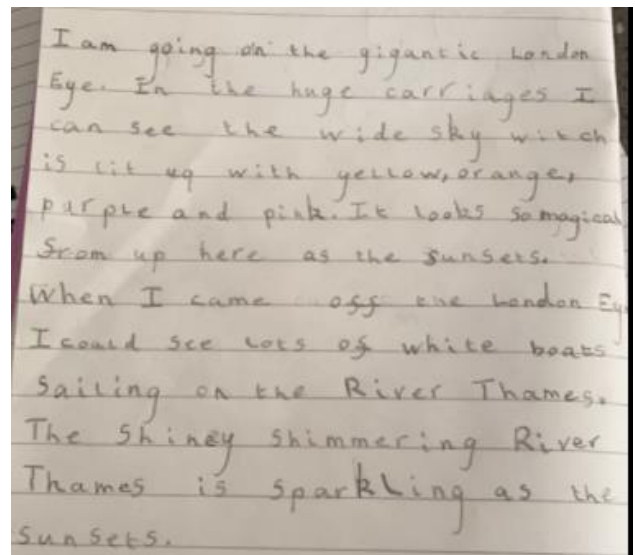 I am going on the gigantic London
Eye. In the huge carriages I
can see the wide sky witch
is lit up with yellow, orange,
purple and pink. It looks so magical
from up here as the sunsets.
When I came off the London Ey
I could see lots of white boats
sailing on the River Thames.
The Shiney shimmering River
Thames is sparkling as the
sunsets.